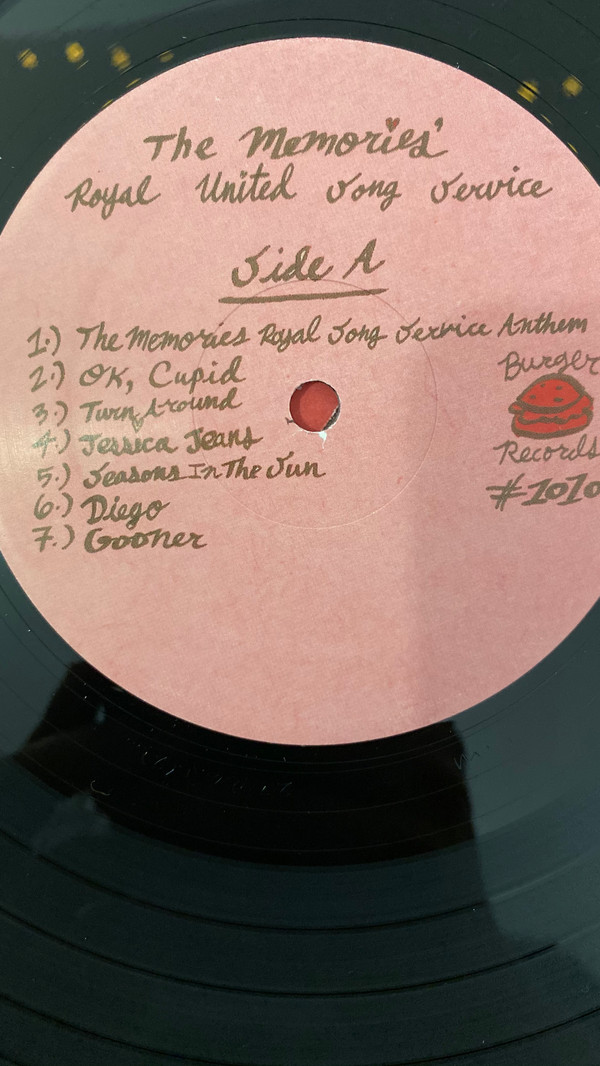 The Memories'
Royal United Song Service
Side A
1.) The Memories Royal Song Service Anthem
2.) OK, Cupid
3.) Turn Around
4.) Jessica Jeans
5.) Seasons In The Sun
6.) Diego
7.) Gooner
Burger
Records
#1010